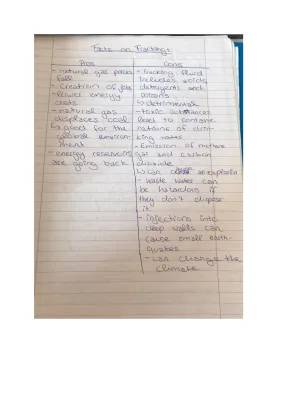 Facts on Fracking:
Pros
- natural gas prices
fall
- Creation of jobs
- lower energy
costs
- natural gas
displaces coal
↳ good for the
global environ-
ment
- energy reserves
are going back
Cons
- fracking fluid
includes acids,
detergents and
poisons
↳ detrimental
- toxic substances
lead to contami-
nations of drin-
king water
- Emission of methane
gas and carbon
dioxide
↳ can
- waste water can
be hazardous if
they don't dispose
it
- injections into
deep wells can
cause small earth-
quakes
- can change the
climate